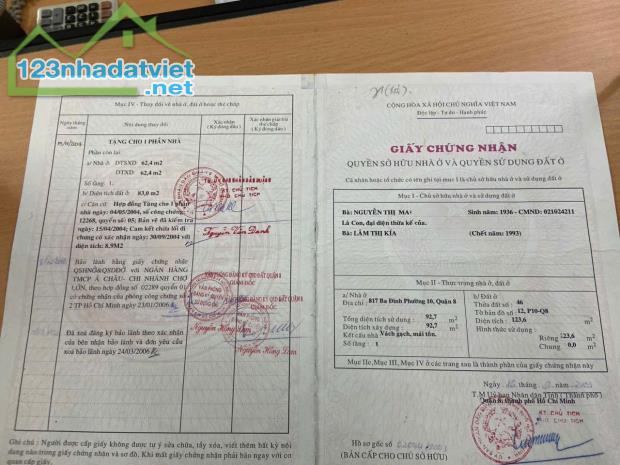 123nhadatviet
Mục IV - Thay đổi về nhà ở, đất ở hoặc thế chấp
Ngày tháng năm
Nội dung thay đổi
Xác nhận
(Ký đóng dấu)
TẶNG CHO 1 PHẦN NHÀ
Phần còn lại :
a/ Nhà ở DTSXD 62,4 m2
DTXD 62,4 m2
Số tầng 1.
b/ Diện tích đất ở 83,0 m2
c/ Căn cứ Hợp đồng Tặng cho 1 phần
nhà ngày 04/05/2004, số công chứng
12268, quyển số: 05; Bản vẽ đã kiểm tra
ngày 15/04/2004; Cam kết chừa lối đi
chung có xác nhận ngày 30/09/2004 với
diện tích 8.9M2
Nguyễn Văn Danh
Bảo lãnh bằng giấy chứng nhận
QSHNỞ&QSDĐỞ với NGÂN HÀNG
TMCP Á CHÂU- CHI NHÁNH CHỢ
LỚN, theo hợp đồng số 02289 quyển 01
có chứng nhận của phòng công chứng số
2 TP Hồ Chí Minh ngày 23/01/2006
Đã xoá đăng ký bảo lãnh theo xác nhận
của bên nhận bảo lãnh và đơn yêu cầu
xoá bảo lãnh ngày 24/03/2006
Ghi chú : Người được cấp giấy không được tự ý sửa chữa, tẩy xóa, viết thêm bất kỳ nội
dung nào trong giấy chứng nhận và sơ đồ. Khi mất giấy chứng nhận phải báo ngay với cơ
quan cấp giấy.
CỘNG HÒA XÃ HỘI CHỦ NGHĨA VIỆT NAM
Độc lập - Tự do - Hạnh phúc
GIẤY CHỨNG NHẬN
QUYỀN SỞ HỮU NHÀ Ở VÀ QUYỀN SỬ DỤNG ĐẤT Ở
Cá nhân hoặc tổ chức có tên ghi tại mục I là chủ sở hữu nhà ở và sử dụng đất ở
Mục I - Chủ sở hữu nhà ở và sử dụng đất ở
Bà: NGUYỄN THỊ MA Sinh năm: 1936 - CMND: 021024211
Là Con, đại diện thừa kế của.
Bà: LÂM THỊ KÍA (Chết năm: 1993)
Mục II - Thực trạng nhà ở, đất ở
a/ Nhà ở
Địa chỉ : 817 Ba Đình Phường 10, Quận 8
Tổng diện tích sử dụng 92,7 m2
Diện tích xây dựng 92,7 m2
Kết cấu nhà Vách gạch, mái tôn.
Số tầng : 1
b/ Đất ở
Thửa đất số : 46
Tờ bản đồ số : 12, P10-Q8
Diện tích : 123,6 m2
Hình thức sử dụng
Riêng 123,6 m2
Chung 0,0 m2
Mục IIc, Mục III, Mục IV ở các trang sau là thành phần của giấy chứng nhận này
Ngày
T.M Uỷ ban Nhân Dân Tỉnh (Thành phố)
thành phố Hồ Chí Minh
KT. CHỦ TỊCH
PHÓ CHỦ TỊCH
Hồ sơ gốc số
(BẢN CẤP CHO CHỦ SỞ HỮU)